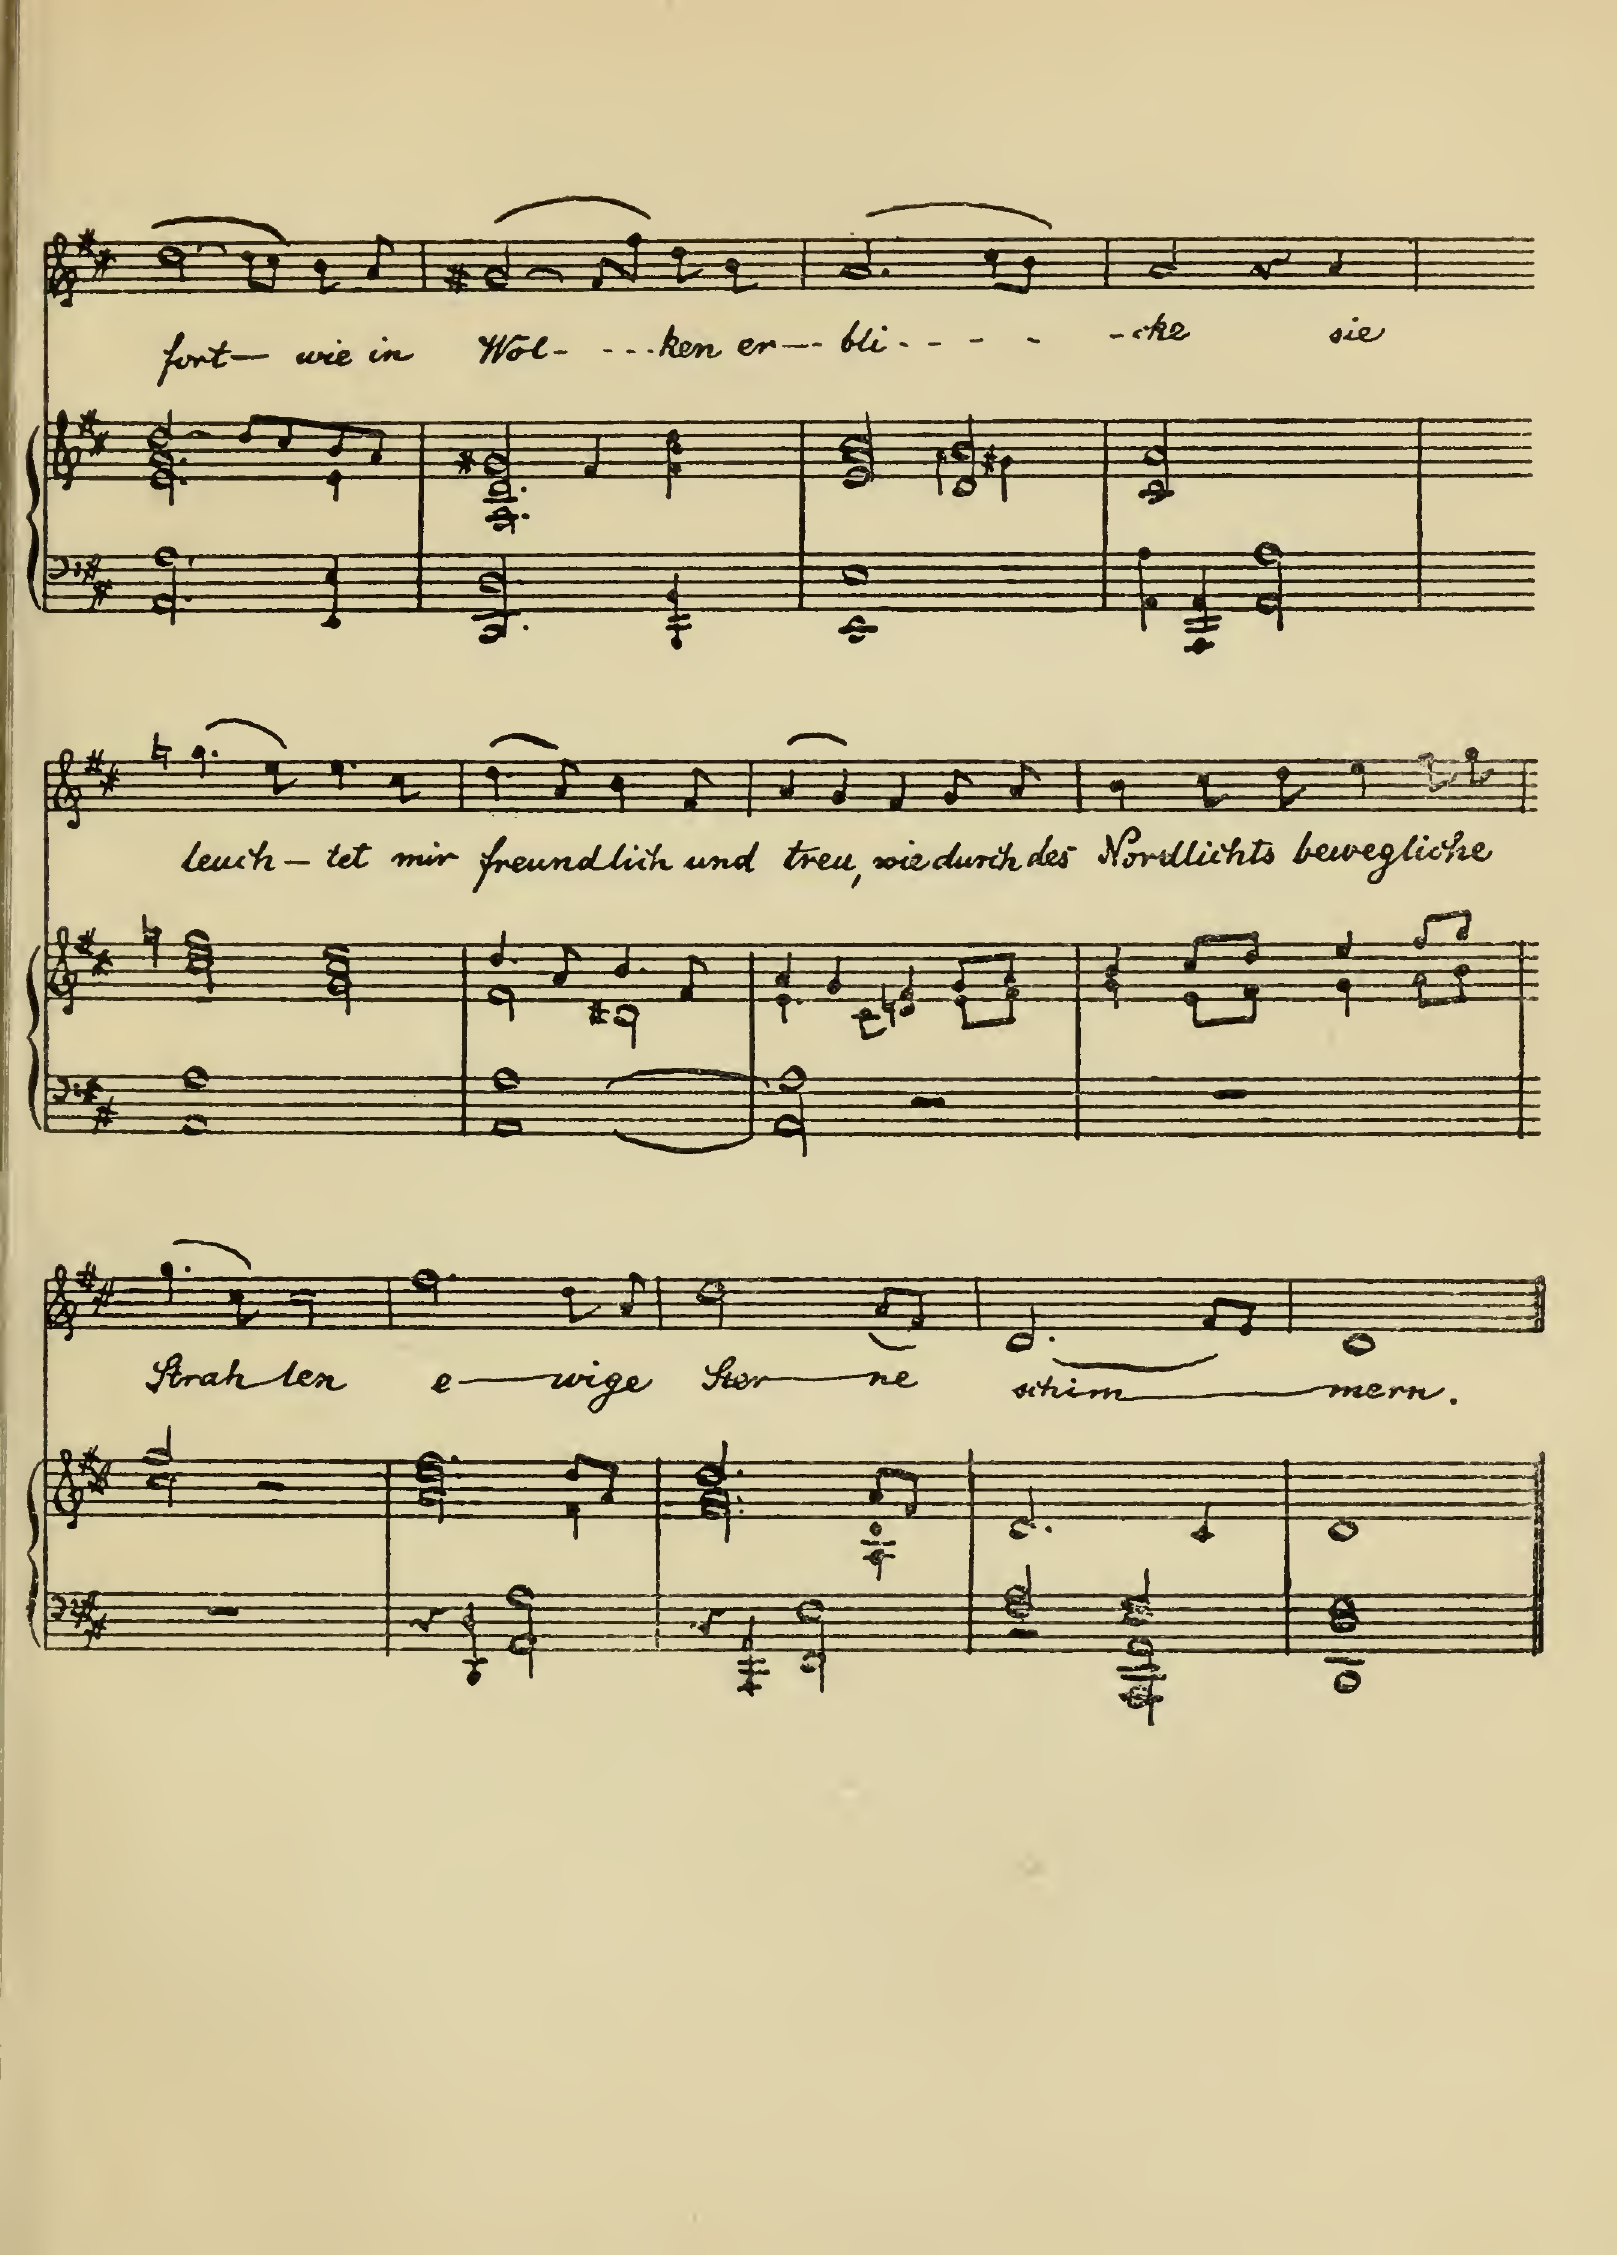 fort— wie in Wol- - - -ken er—- bli- - - - - -cke sie
leuch—tet mir freundlich und treu, wie durch des Nordlichts bewegliche
Strahlen e—wige Ster—ne schim—mern.